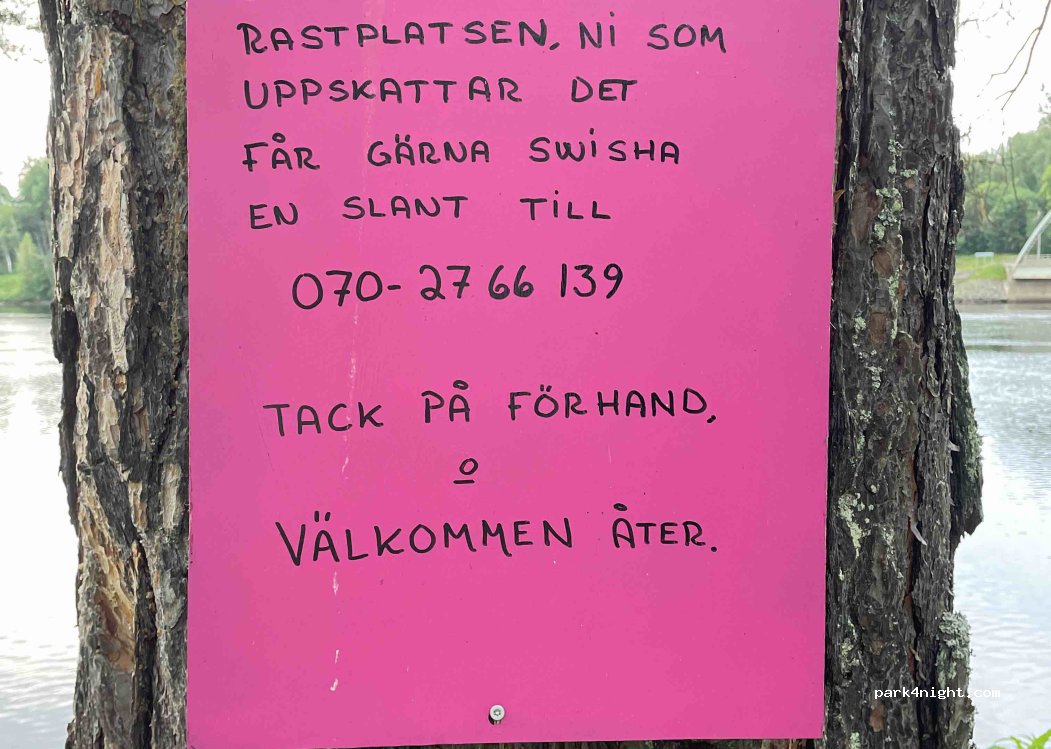 RASTPLATSEN, Ni SOM
UPPSKATTAR DET
FÅR GÄRNA SWiSHA
EN SLANT TiLL
070-27 66 139
TACK PÅ FÖRHAND,
o
VÄLKOMMEN ÅTER.
park4night.com